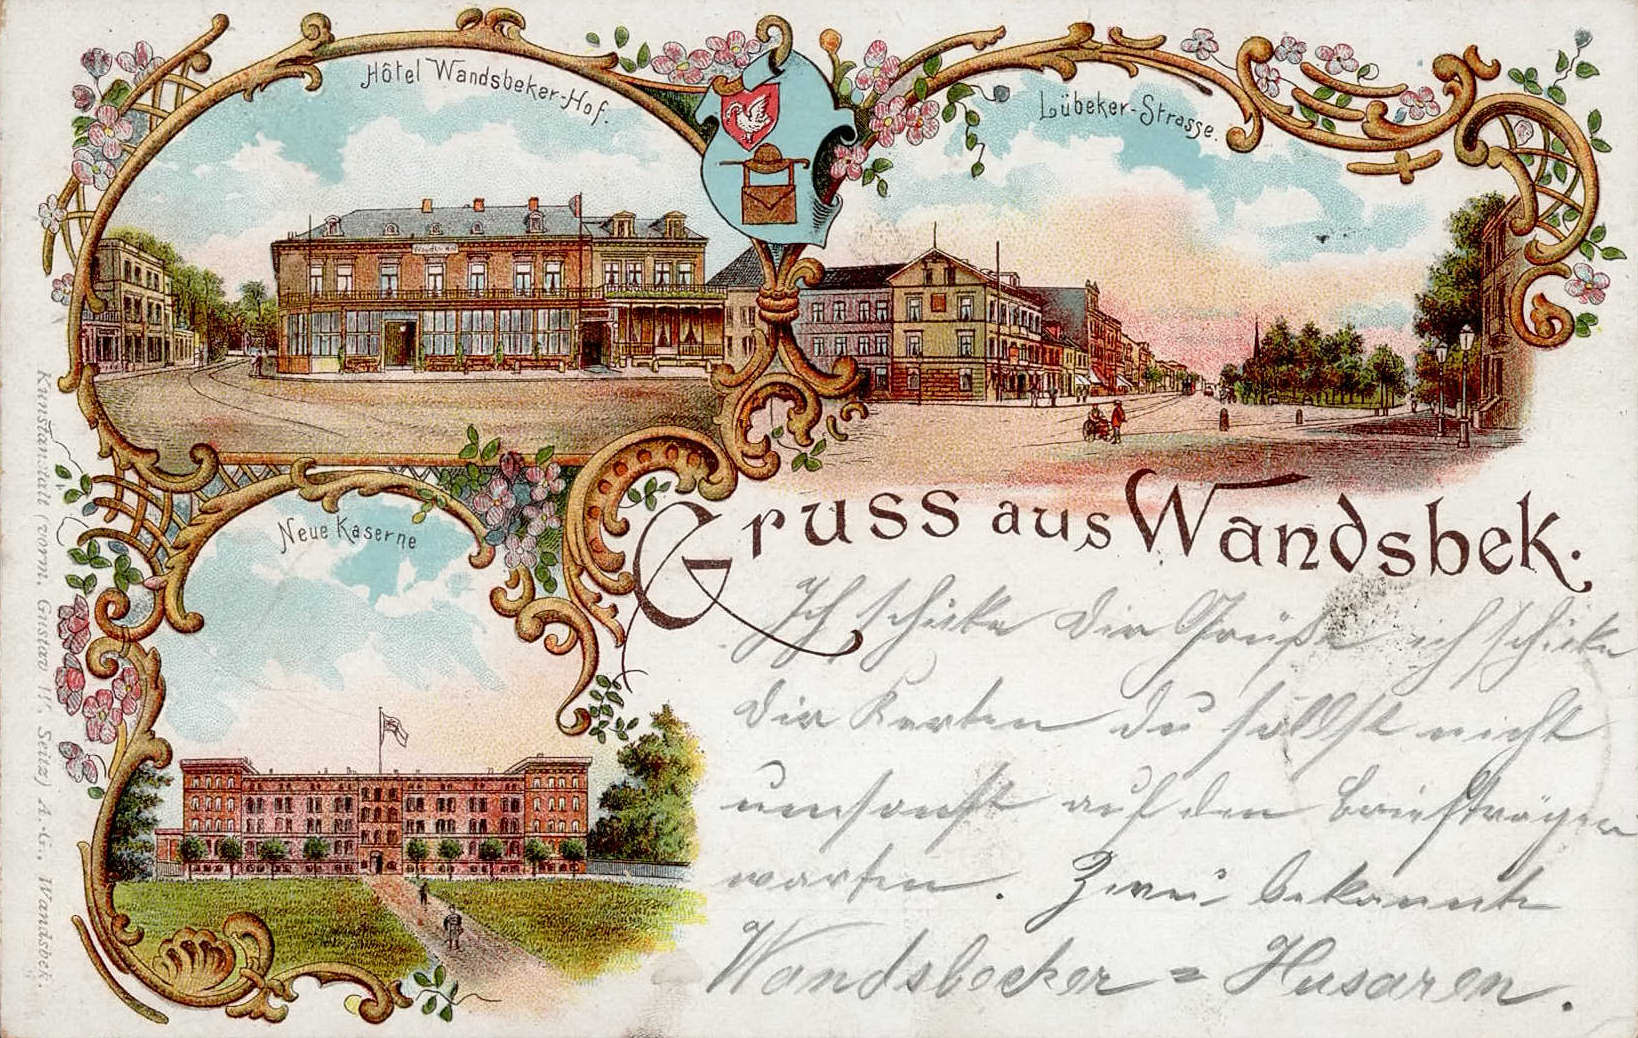 Hôtel Wandsbeker-Hof.
Lübeker-Strasse.
Neue Kaserne
Gruss aus Wandsbek.
Ich schicke Dir Grüße ich schicke
Dir Karten du sollst nicht
umsonst auf den Briefträger
warten. Zwei bekannte
Wandsbecker = Husaren.
Kunstanstalt (vorm. Gustav W. Seitz) A.-G., Wandsbek.